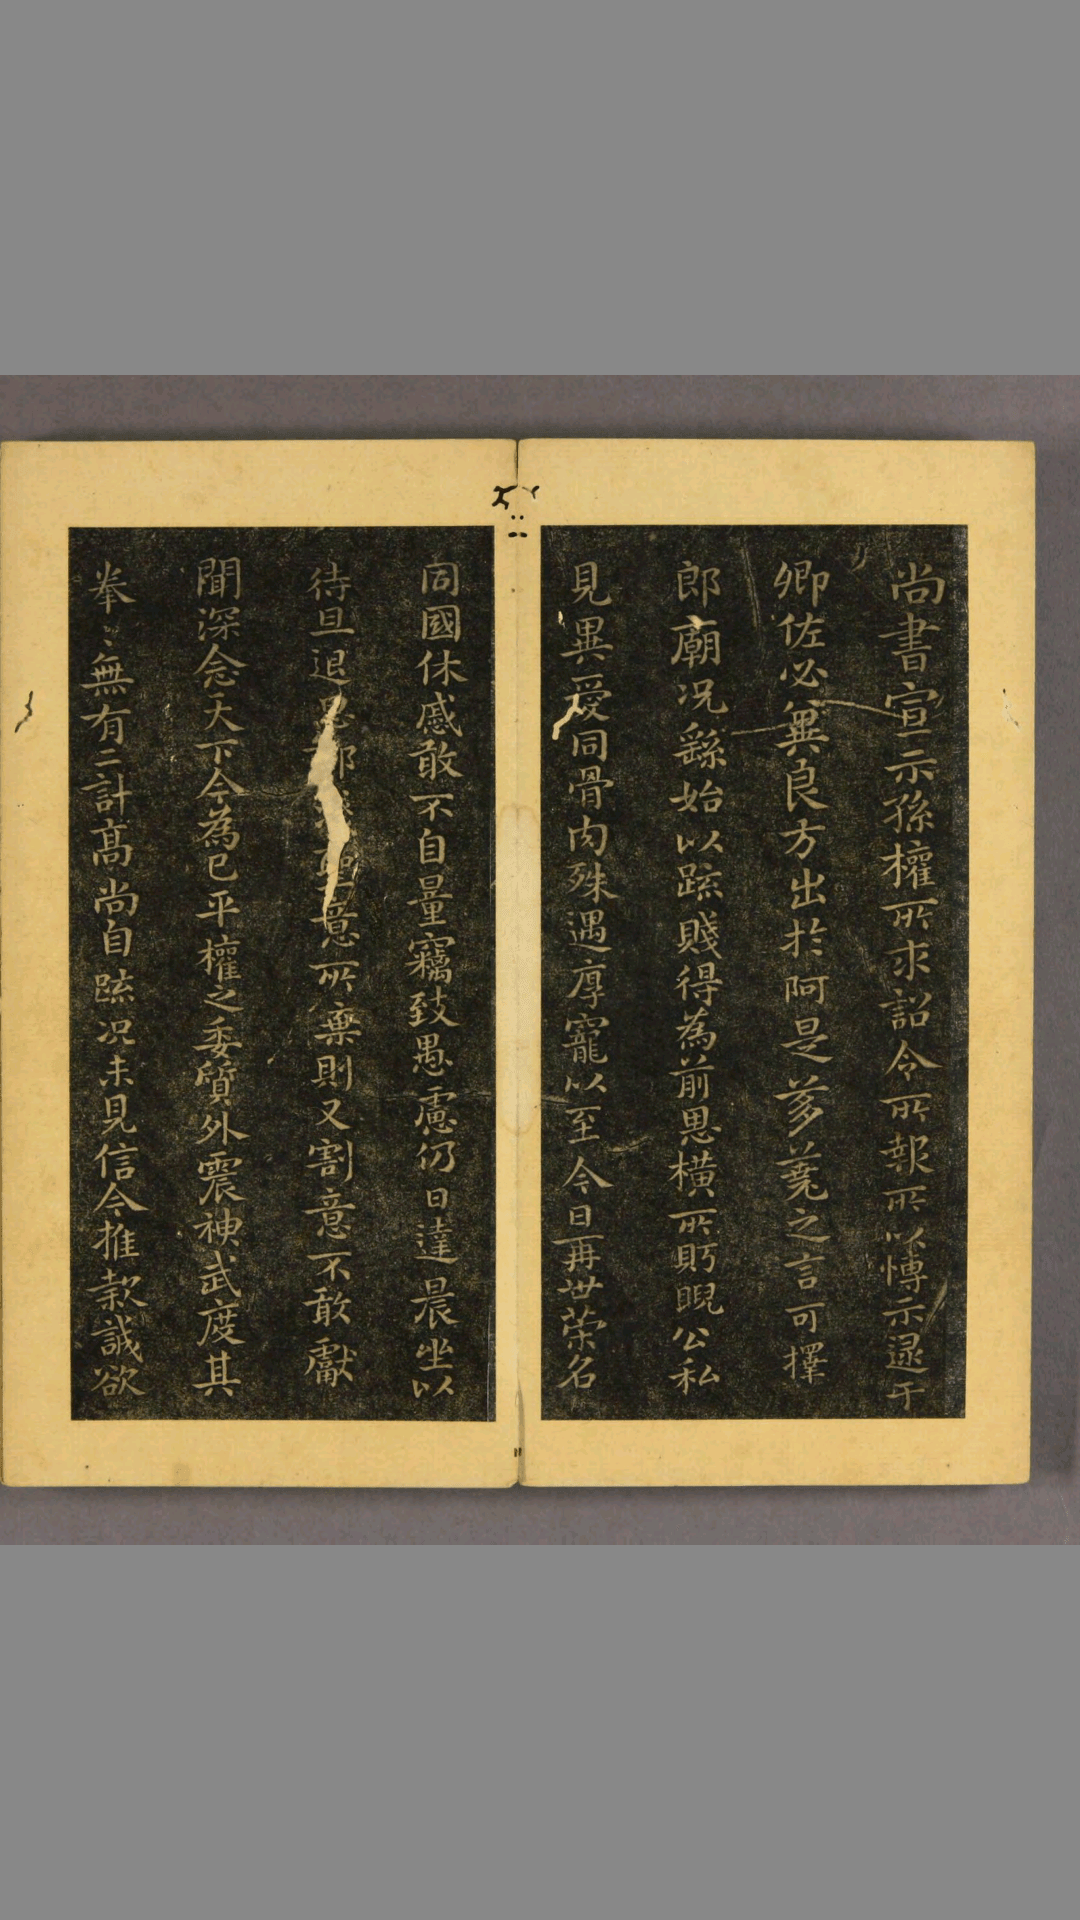 尚書宣示孫權所求詔令所報所以博示逯于
卿佐必兾良方出於阿是芻蕘之言可擇
郎廟况繇始以疏賤得為前恩橫所眄睨公私
見異愛同骨肉殊遇厚寵以至今日再世榮名
同國休慼敢不自量竊致愚慮仍日達晨坐以
待旦退思聖意所棄則又割意不敢獻
聞深念天下今為已平權之委質外震神武度其
拳〻無有二計高尚自疏况未見信今推款誠欲